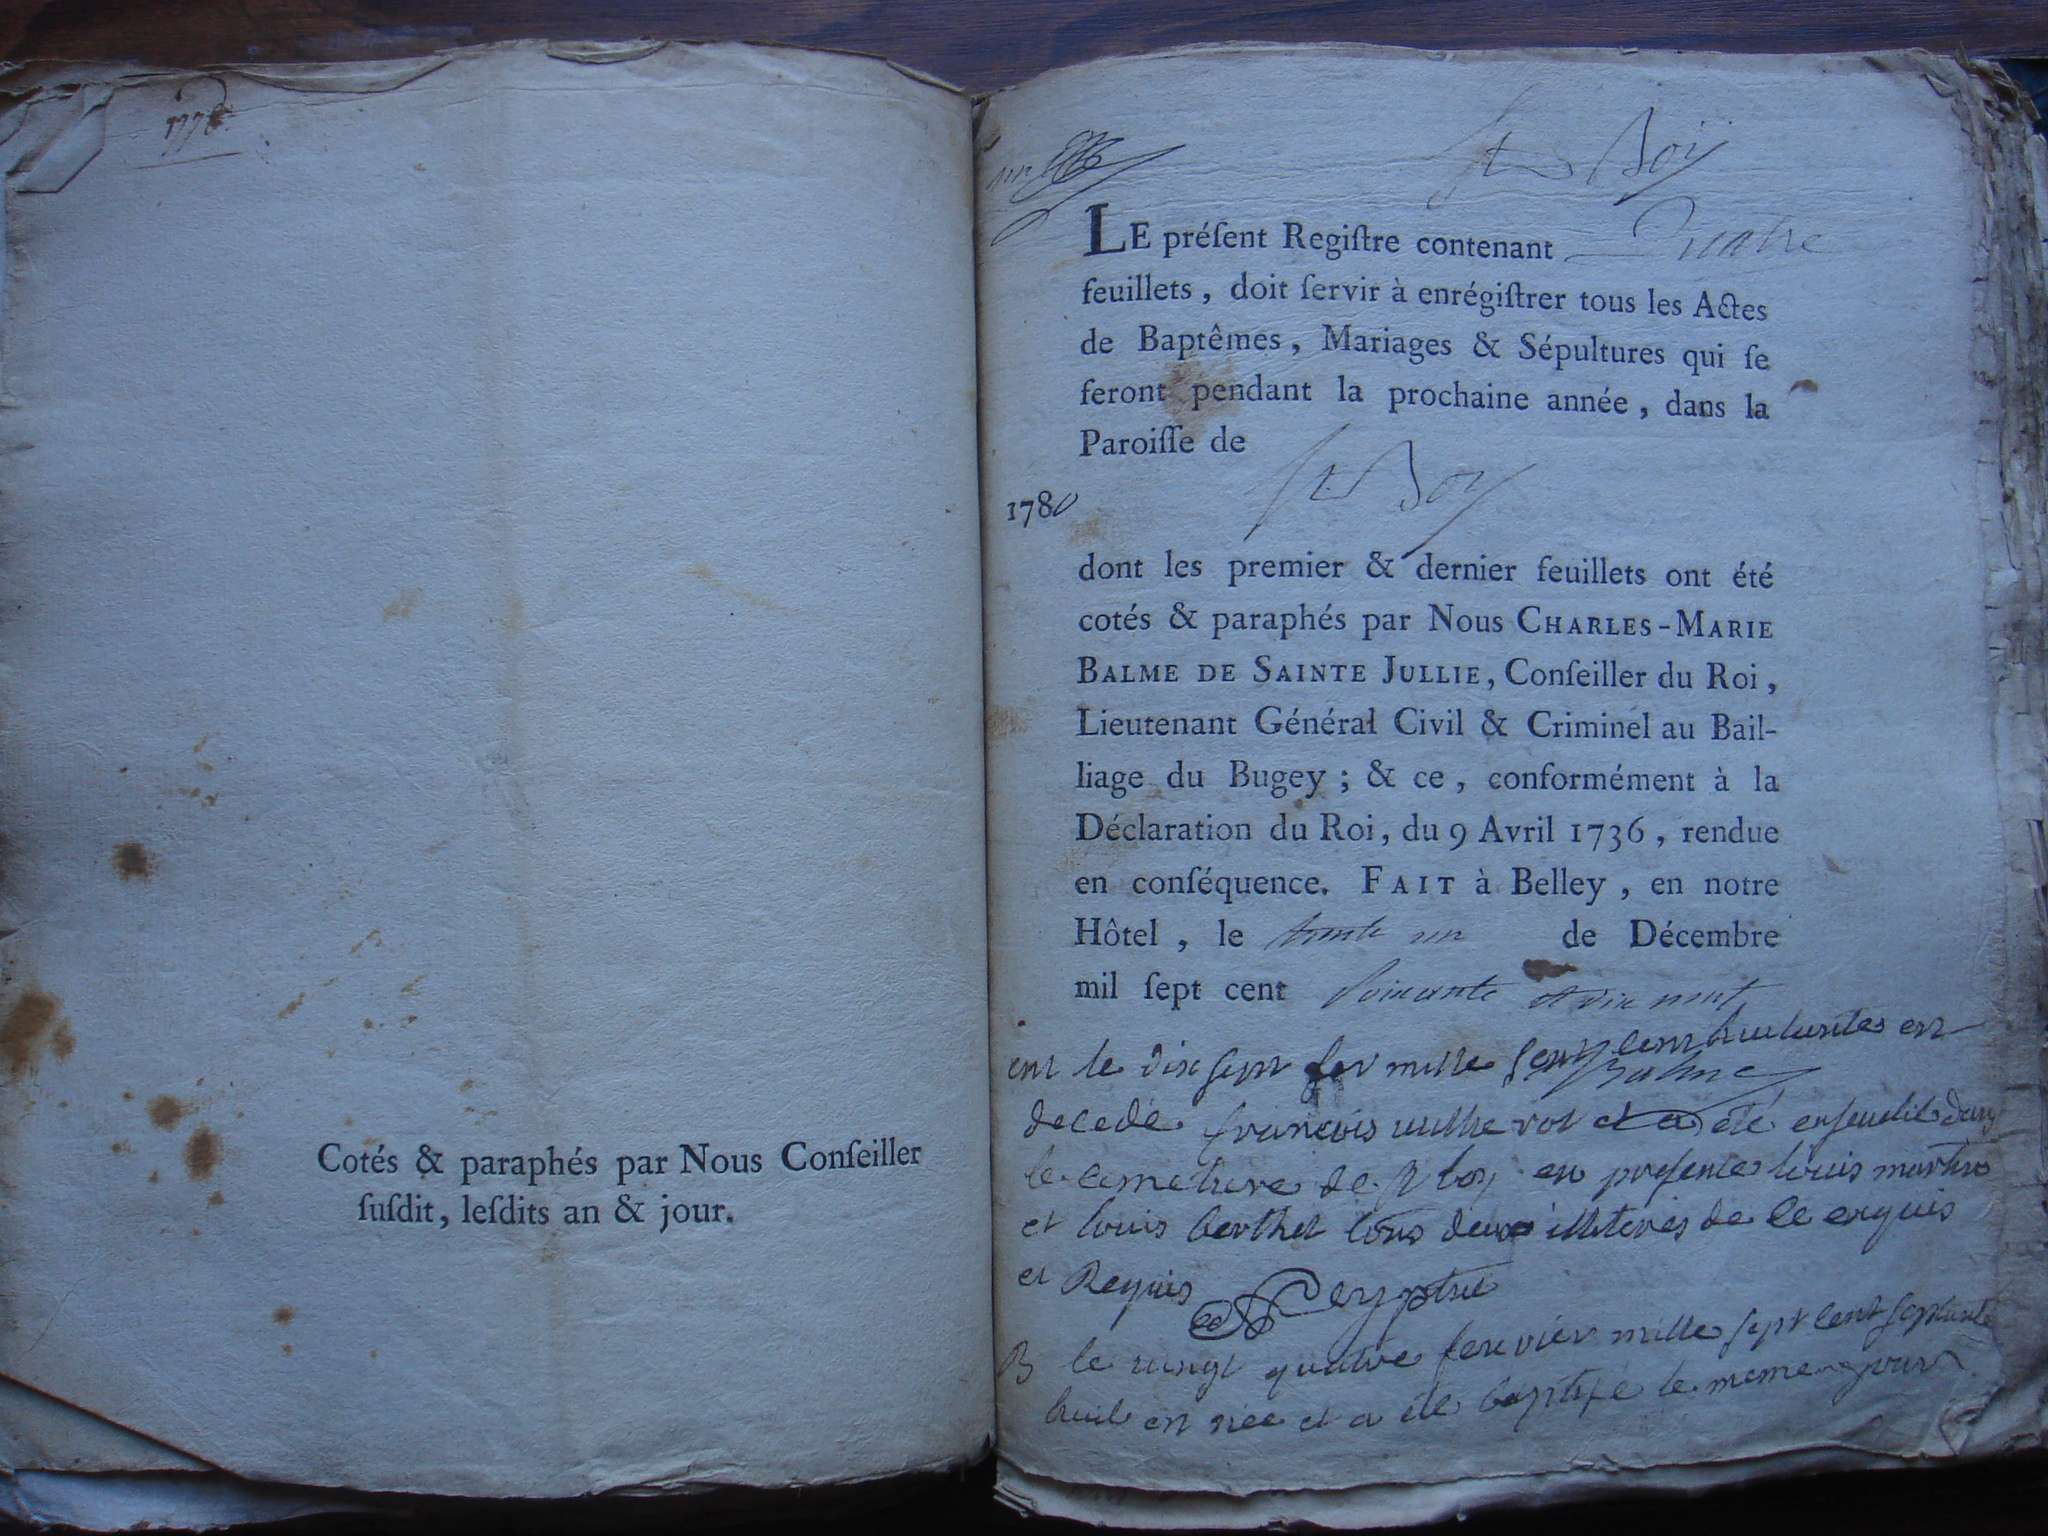 1778
Cotés & paraphés par Nous Conſeiller
ſuſdit, leſdits an & jour.
St Boij
LE préſent Regiſtre contenant Quatre
feuillets, doit ſervir à enrégiſtrer tous les Actes
de Baptêmes, Mariages & Sépultures qui ſe
feront pendant la prochaine année, dans la
Paroiſſe de
St Boy
1780
dont les premier & dernier feuillets ont été
cotés & paraphés par Nous CHARLES-MARIE
BALME DE SAINTE JULLIE, Conſeiller du Roi,
Lieutenant Général Civil & Criminel au Bail-
liage du Bugey; & ce, conformément à la
Déclaration du Roi, du 9 Avril 1736, rendue
en conſéquence. FAIT à Belley, en notre
Hôtel, le trente un de Décembre
mil ſept cent soixante et dix neuf
le dix sept mille sept cent en
Balme
decede francois et a été enseueli dans
le de St boy en presence louis martin
et louis berthet tous deux illiteres de ce enquis
et Requis Peysstrut
B le vingt quatre feuvier mille sept cent septante
huit en née et a été baptisé le meme jour